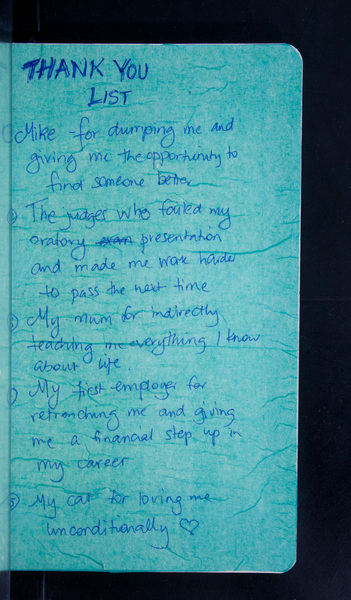 THANK YOU
LIST
① Mike for dumping me and
giving me the opportunity to
find someone better
② The judges who failed my
oratory exam presentation
and made me work harder
to pass the next time
③ My mum for indirectly
teaching me everything I know
about life.
④ My first employer for
retrenching me and giving
me a financial step up in
my career
⑤ My cat for loving me
unconditionally ♡